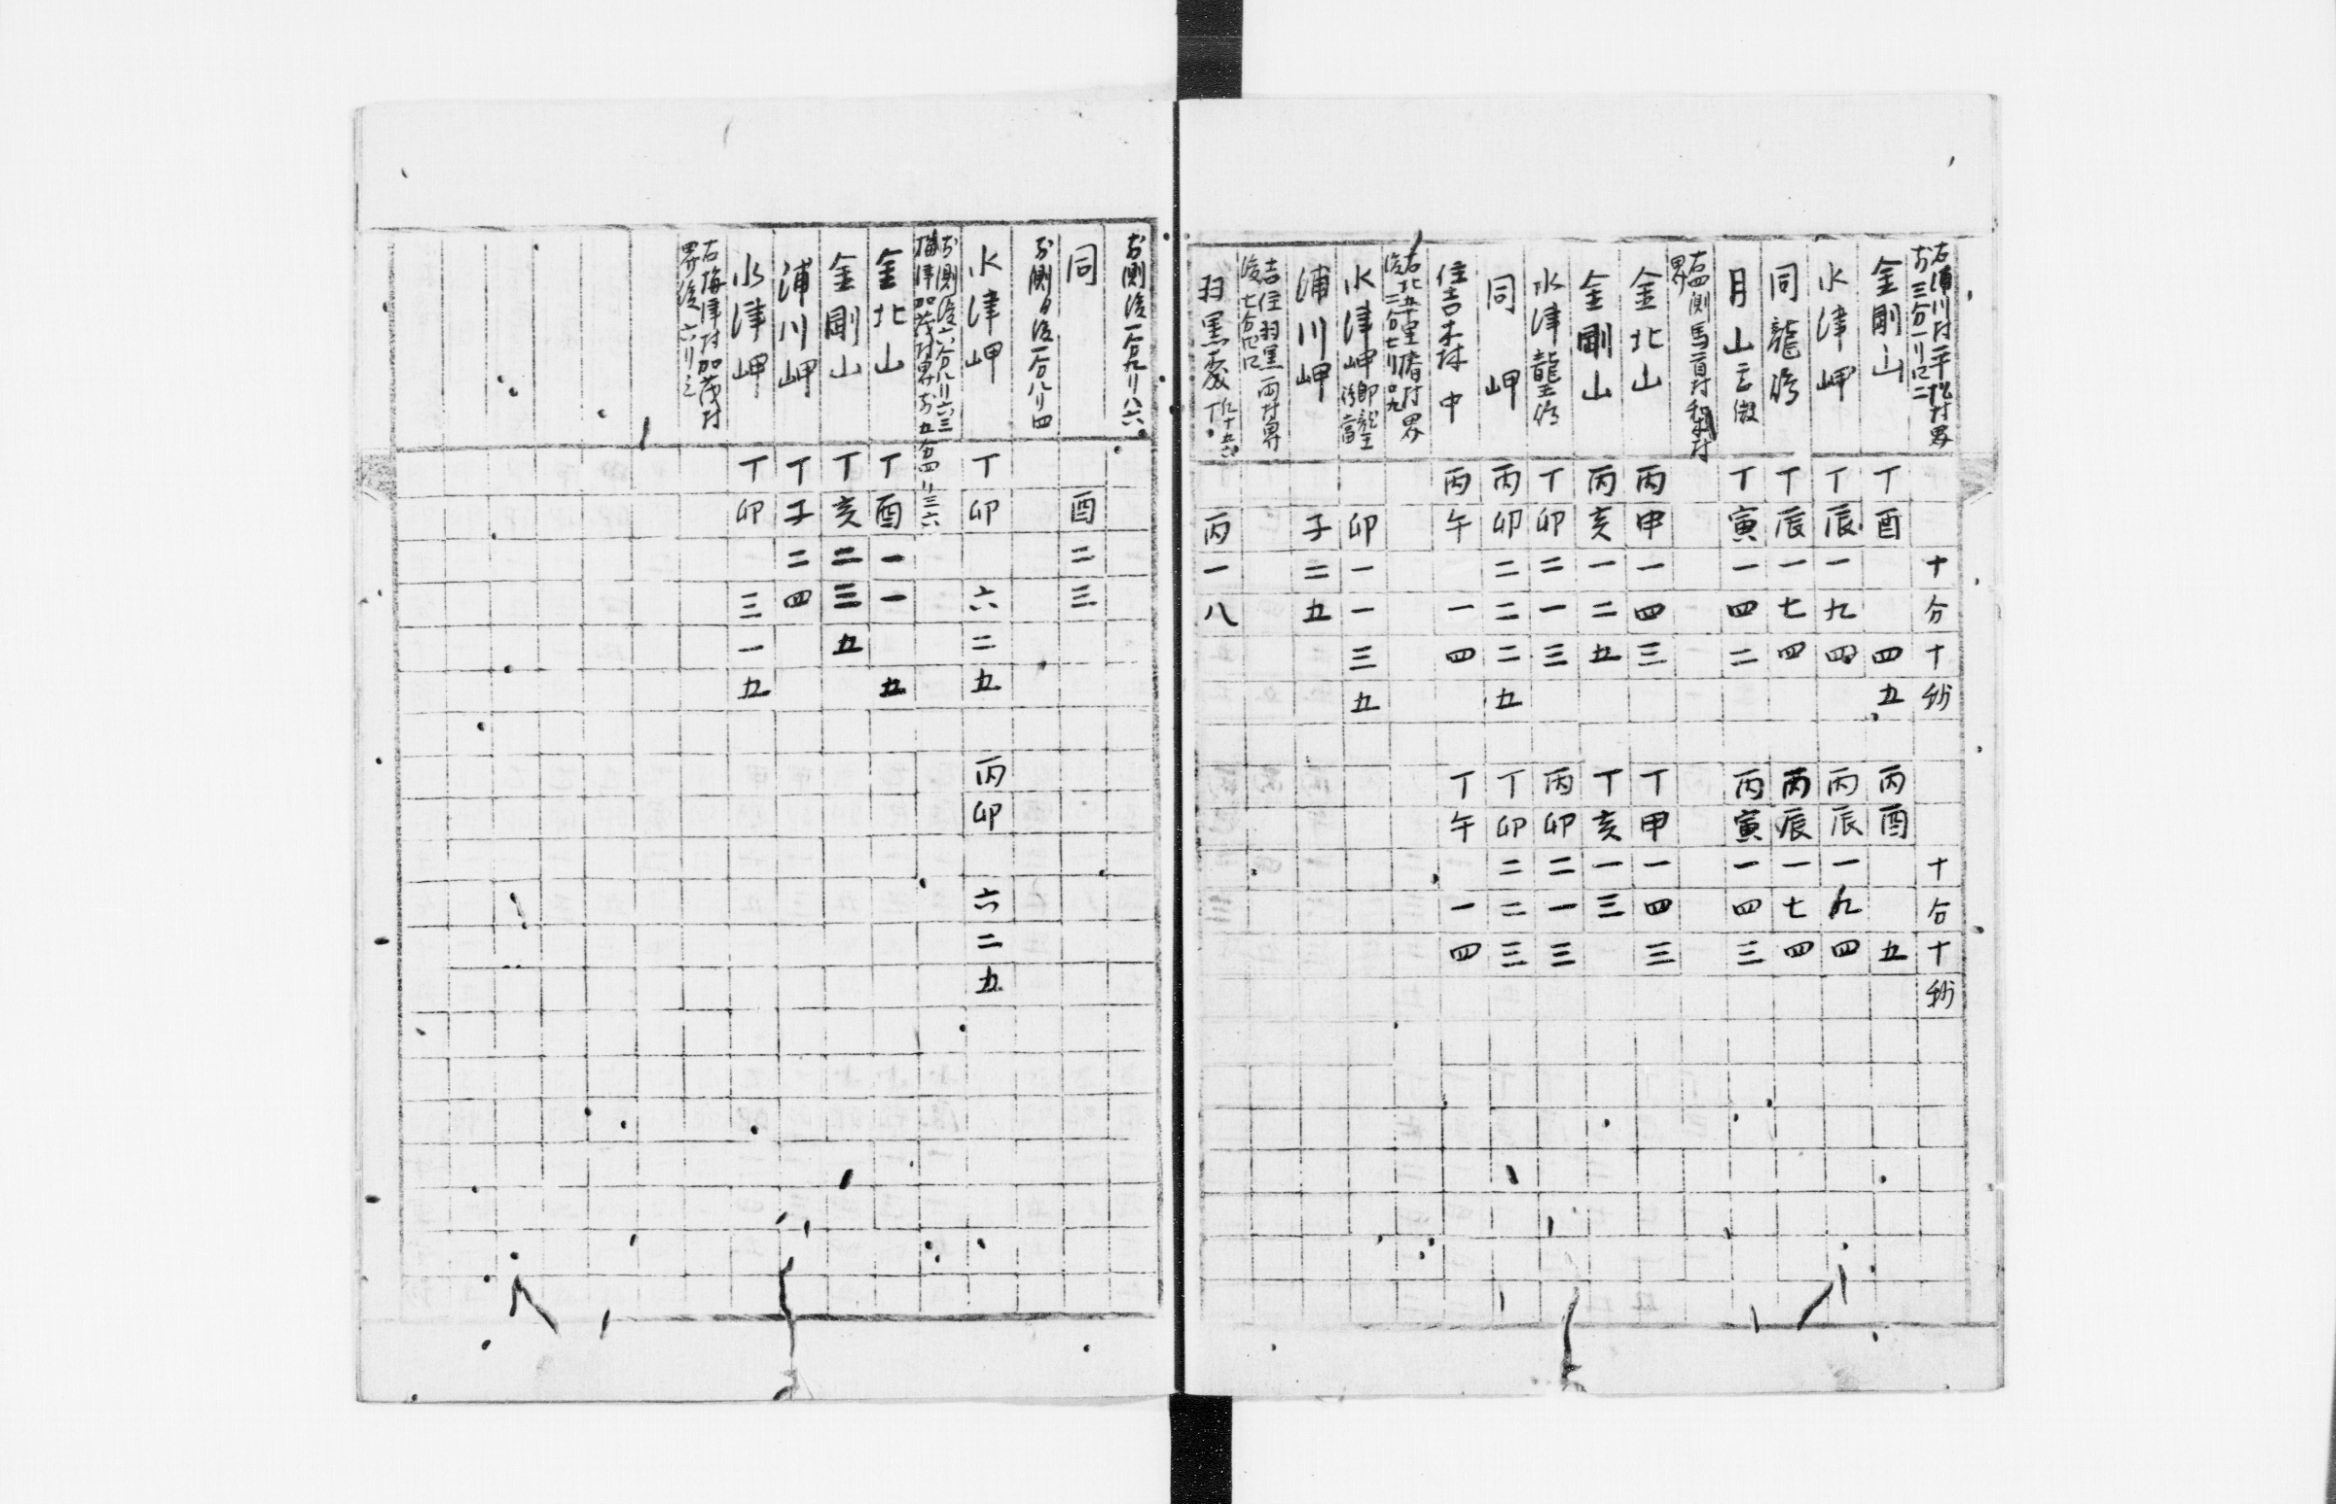 右浦川村平松村界
お三分一リ口二
十分十秒 十分十秒
金剛山 丁酉四五 丙酉五
水津岬 丁辰一九四 丙辰一九四
同龍 丁辰一七四 丙辰一七四
月山 丁寅一四二 丙寅一四三
右四側馬首村
界
金北山 丙申一四三 丁甲一四三
金剛山 丙亥一二五 丁亥一三
水津龍王 丁卯二一三 丙卯二一三
同岬 丙卯二二二五 丁卯二二三
住吉森中 丙午一四 丁午一四
右北五十里村界
後二合七リ九
水津岬 卯一一三五
浦川岬 子二五
吉住羽黒両村界
後七合
羽黒 丙一八
お側後一合九リ八六
同 酉二三
お側自後一合八リ四
水津岬 丁卯六二五 丙卯六二五
お側後六合八リ六三
梅津加茂村界お五合四リ三六
金北山 丁酉一一五
金剛山 丁亥二三五
浦川岬 丁子二四
水津岬 丁卯三一五
右梅津村加茂村
界後六リ三